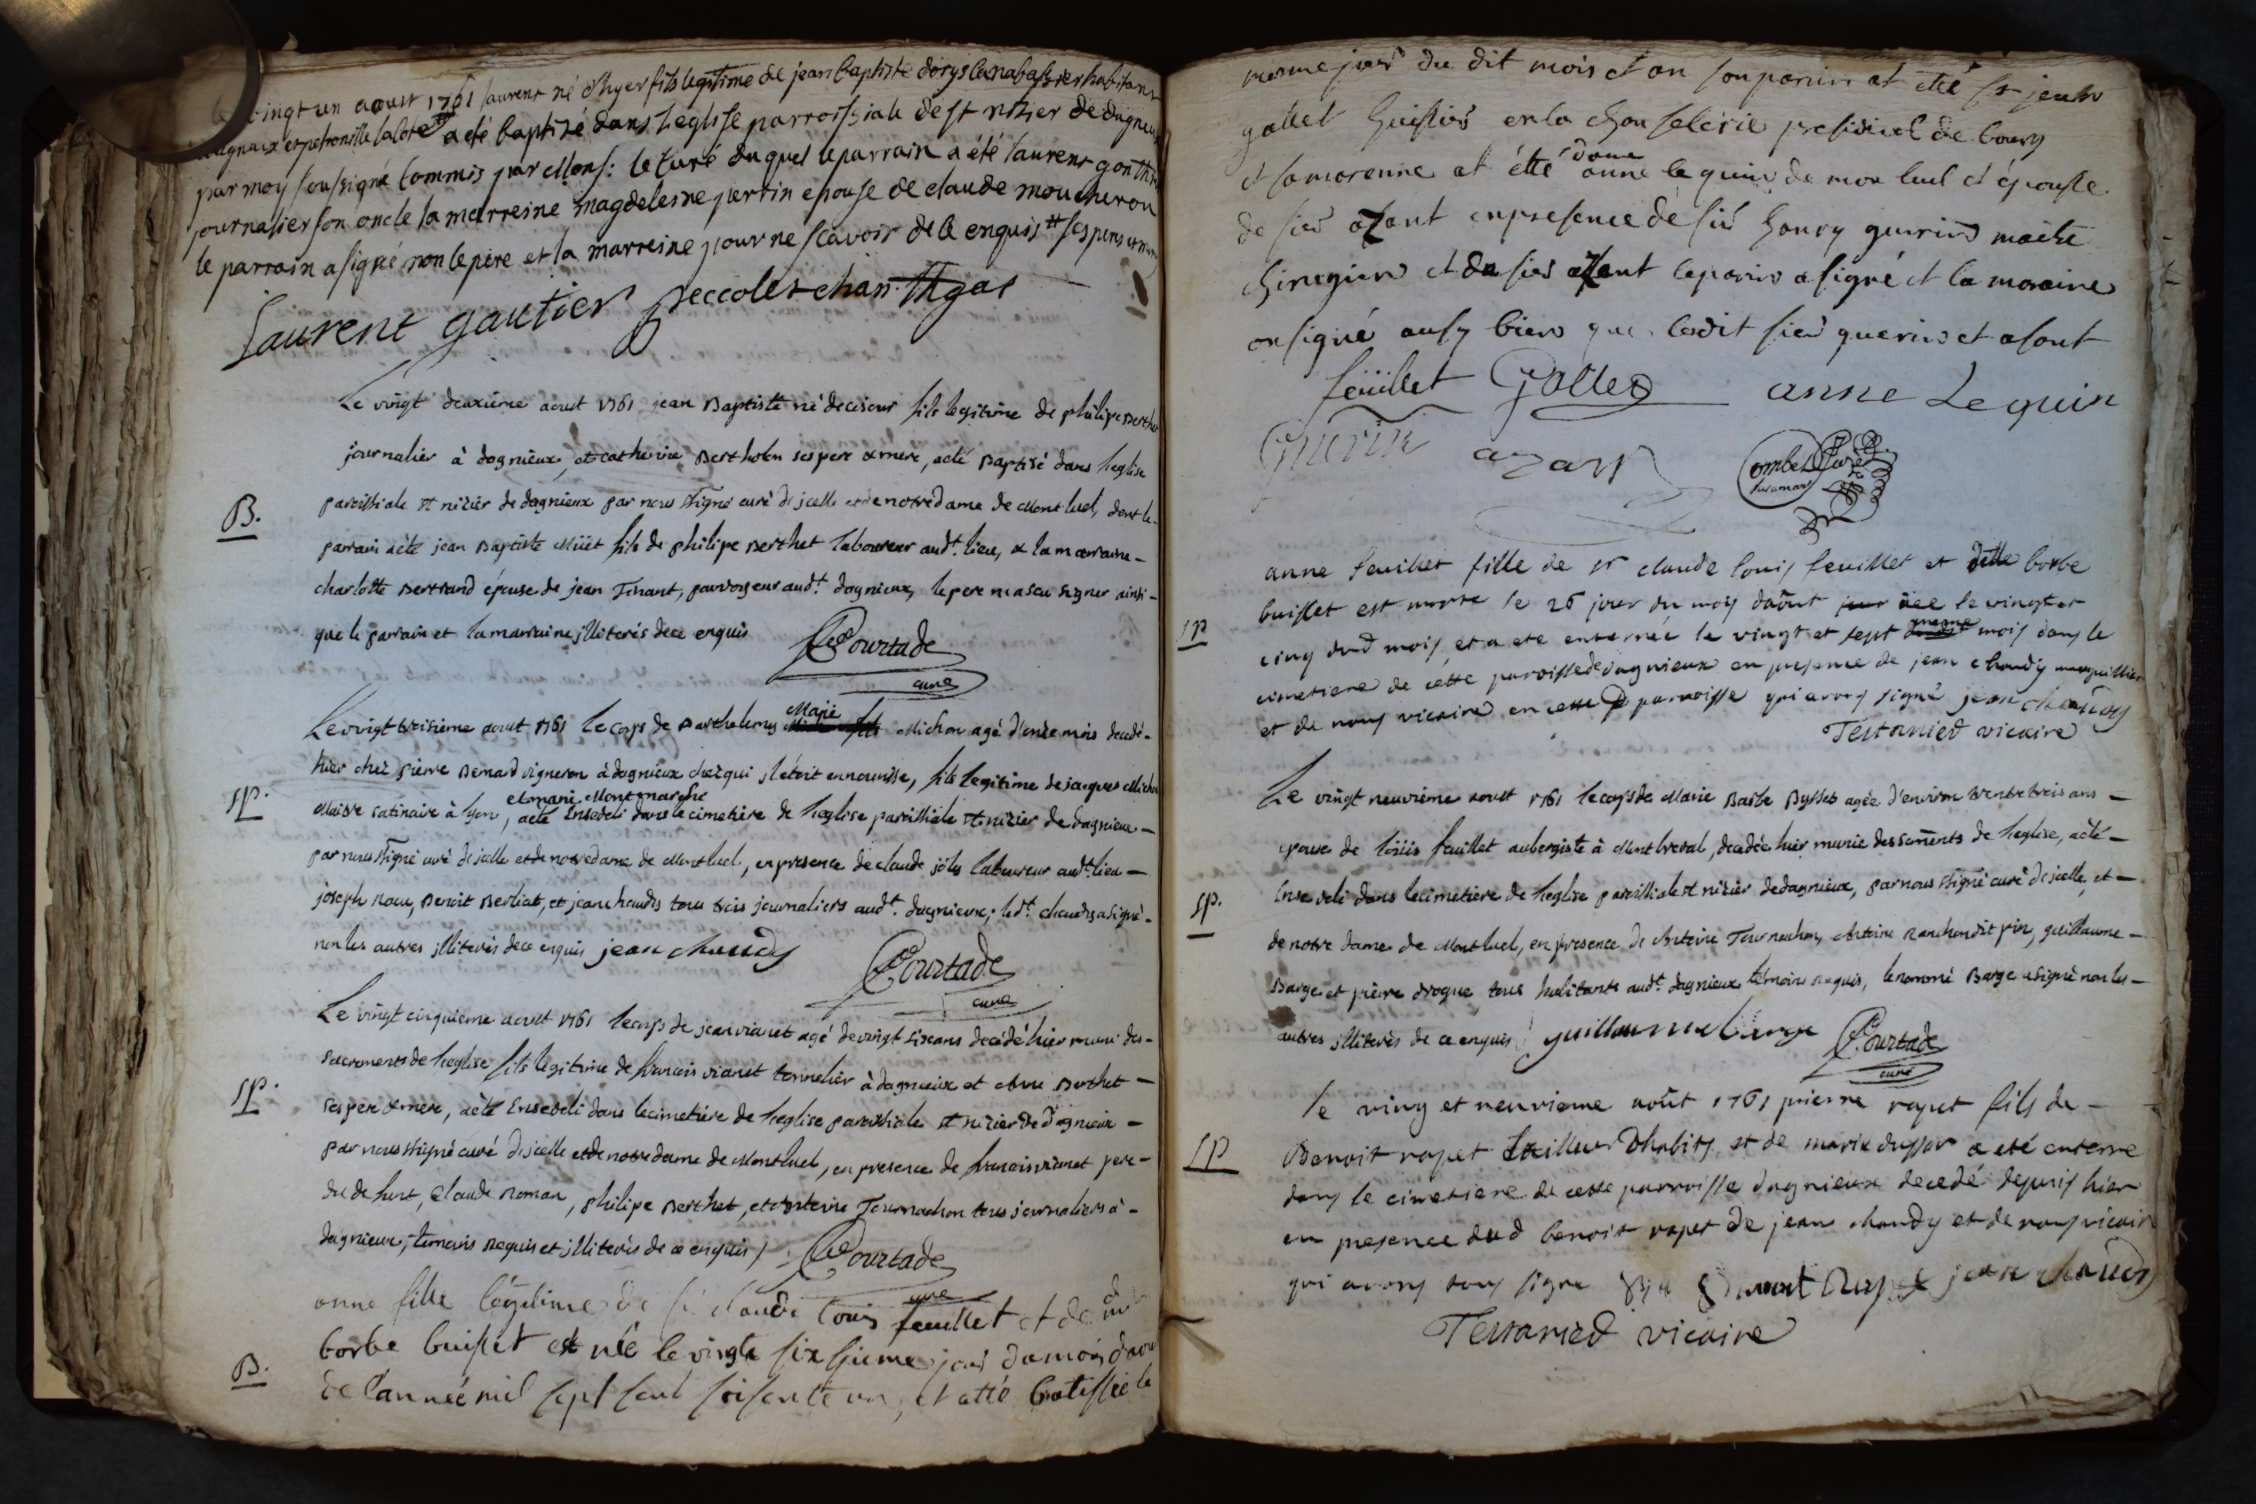 vingt un aoust 1761 laurent né d'hyer fils legitime de jean baptiste dorys habitant
et petronille lacôte a été baptisé dans l'eglise parroissiale de st nizier de dagneux
par moy soussigné commis par Mons: le curé duquel le parrain a été laurent
journalier son oncle la marreine magdeleine perrin epouse de claude moucheron
le parrain a signé non le père et la marreine pour ne scavoir de ce enquis
Laurent gautier
Le vingt deuxième aoust 1761 jean Baptiste né de ce jour fils legitime de philipe Berthet
journalier à dagnieux, et catherine Bertholon ses pere & mere, a été Baptisé dans l'eglise
B.
paroissiale st nizier de dagnieux par nous ssigné curé d'icelle et de notre dame de Montluel, dont le
parrain a été jean Baptiste fils de philipe Berthet laboureur audt. lieu, & la marraine
charlotte Bertrand épouse de jean audt. dagnieux, le pere n'a scu signer ainsi
que le parrain et la marraine illiterés de ce enquis
Courtade
curé
Le vingt troisième aoust 1761 le corps de Barthelemy Michon agé d'onze mois decedé
hier chez pierre Bernard vigneron à dagnieux chez qui il étoit en nourrise, fils legitime de jacques Michon
SP.
Maitre satinaire à lyon, et marie Montmarché a été Enseveli dans le cimetière de l'eglise paroissiale st nizier de dagnieux
par nous ssigné curé d'icelle et de notre dame de Montluel, en presence de claude laboureur audt. lieu
joseph Benoit Berliat, et jean chaudy tous trois journaliers audt. dagnieux; ledt. chaudy a signé
non les autres illiterés de ce enquis jean chaudy
Courtade
curé
Le vingt cinquieme aoust 1761 le corps de jean vianet agé de vingt six ans decédé hier muni des
sacrements de l'eglise fils legitime de francois vianet tonnelier à dagnieux et Anne Berthet
SP.
ses pere & mere, a été Enseveli dans le cimetière de l'eglise paroissiale st nizier de dagnieux
par nous ssigné curé d'icelle et de notre dame de Montluel, en presence de francois vianet pere
du defunt, Claude Roman, philipe Berthet, et Antoine Tournachon tous journaliers à
dagnieux, temoins Requis et illiterés de ce enquis
Courtade
curé
anne fille légitime de claude louis feuillet et de
borbe buisset est née le vingt sixsieme jour du mois daou
B.
de l'année mil sept sent soisente un, et a été batissée le
mesme jour du dit mois et an son parin at etté sr jean
gallet huissier en la chanselerie presidiel de bourg
et sa marenne at étté dame anne lequin de mon luel et épouse
de sieu azant en presence de sieu henry guerin maitre
chirugien et du sieu azant le parin a signé et la maraine
on signé ausy bien que ledit sieu guerin et asant
feüillet Gallet anne Le quin
Guerin azant
Combet Curé
anne feuillet fille de sr claude louis feuillet et delle borbe
buisset est morte le 26 jour du mois daôut née le vingt et
SP
cinq dud mois, et a ete enterrée le vingt et sept mesme mois dans le
cimetiere de cette paroisse de dagnieux en presence de jean chaudy marguillier
et de nous vicaire en cette parroisse qui avons signé jean chaudy
Testanied vicaire
Le vingt neuvième aoust 1761 le corps de Marie Barbe Buisset agée d'environ trente trois ans
epouse de loüis feuillet aubergiste à Montreval, decedée hier munie des sacrements de l'eglise, a été
SP.
Ensevelie dans le cimetière de l'eglise paroissiale st nizier de dagnieux, par nous ssigné curé d'icelle, et
de notre dame de Montluel, en presence de Antoine Tournachon, Antoine Ranchon dit pin, guillaume
Barge et pierre drogue tous habitants audt. dagnieux témoins requis, le nommé Barge a signé non les
autres illiterés de ce enquis guillaume barge
Courtade
curé
le ving et neuvieme août 1761 pierre rapet fils de
SP
Benoit rapet tailleur d'habits et de marie a eté enterre
dans le cimetiere de cette parroisse dagnieux decedé depuis hier
en presence dud benoit rapet de jean chaudy et de nous vicaire
qui avons tous signe Benoit Rapet jean chaudy
Testanied vicaire